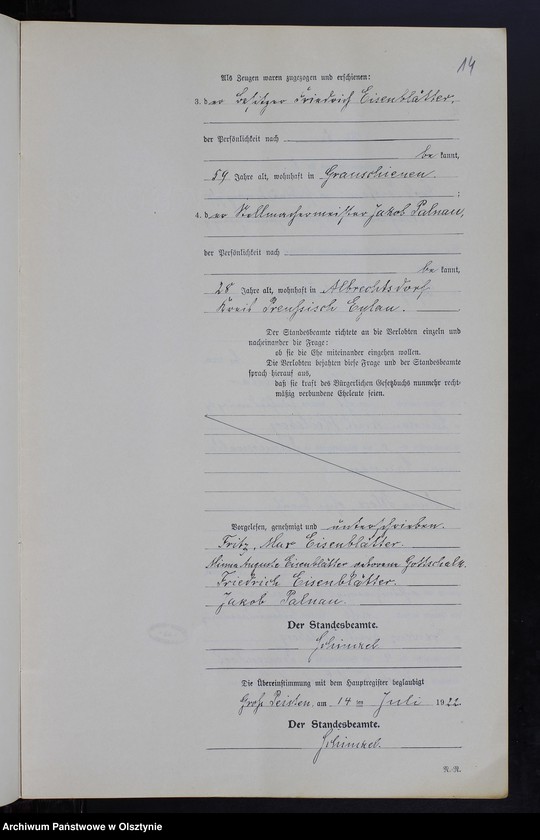 14
Als Zeugen waren zugezogen und erschienen:
3. der Besitzer Friedrich Eisenblätter,
der Persönlichkeit nach
be kannt,
59 Jahre alt, wohnhaft in Grauschienen
;
4. der Stellmachermeister Jakob Palnau,
der Persönlichkeit nach
be kannt,
28 Jahre alt, wohnhaft in Albrechtsdorf
Kreis Preußisch Eylau.
Der Standesbeamte richtete an die Verlobten einzeln und
nacheinander die Frage:
ob sie die Ehe miteinander eingehen wollen.
Die Verlobten bejahten diese Frage und der Standesbeamte
sprach hierauf aus,
daß sie kraft des Bürgerlichen Gesetzbuchs nunmehr recht-
mäßig verbundene Eheleute seien.
Vorgelesen, genehmigt und unterschrieben.
Fritz, Max Eisenblätter.
Minna Auguste Eisenblätter geborene Gottschalk.
Friedrich Eisenblätter.
Jakob Palnau.
Der Standesbeamte.
Schinkel.
Die Übereinstimmung mit dem Hauptregister beglaubigt
Groß Peisten, am 14 ten Juli 1922.
Der Standesbeamte.
Schinkel.
R./R.
Archiwum Państwowe w Olsztynie